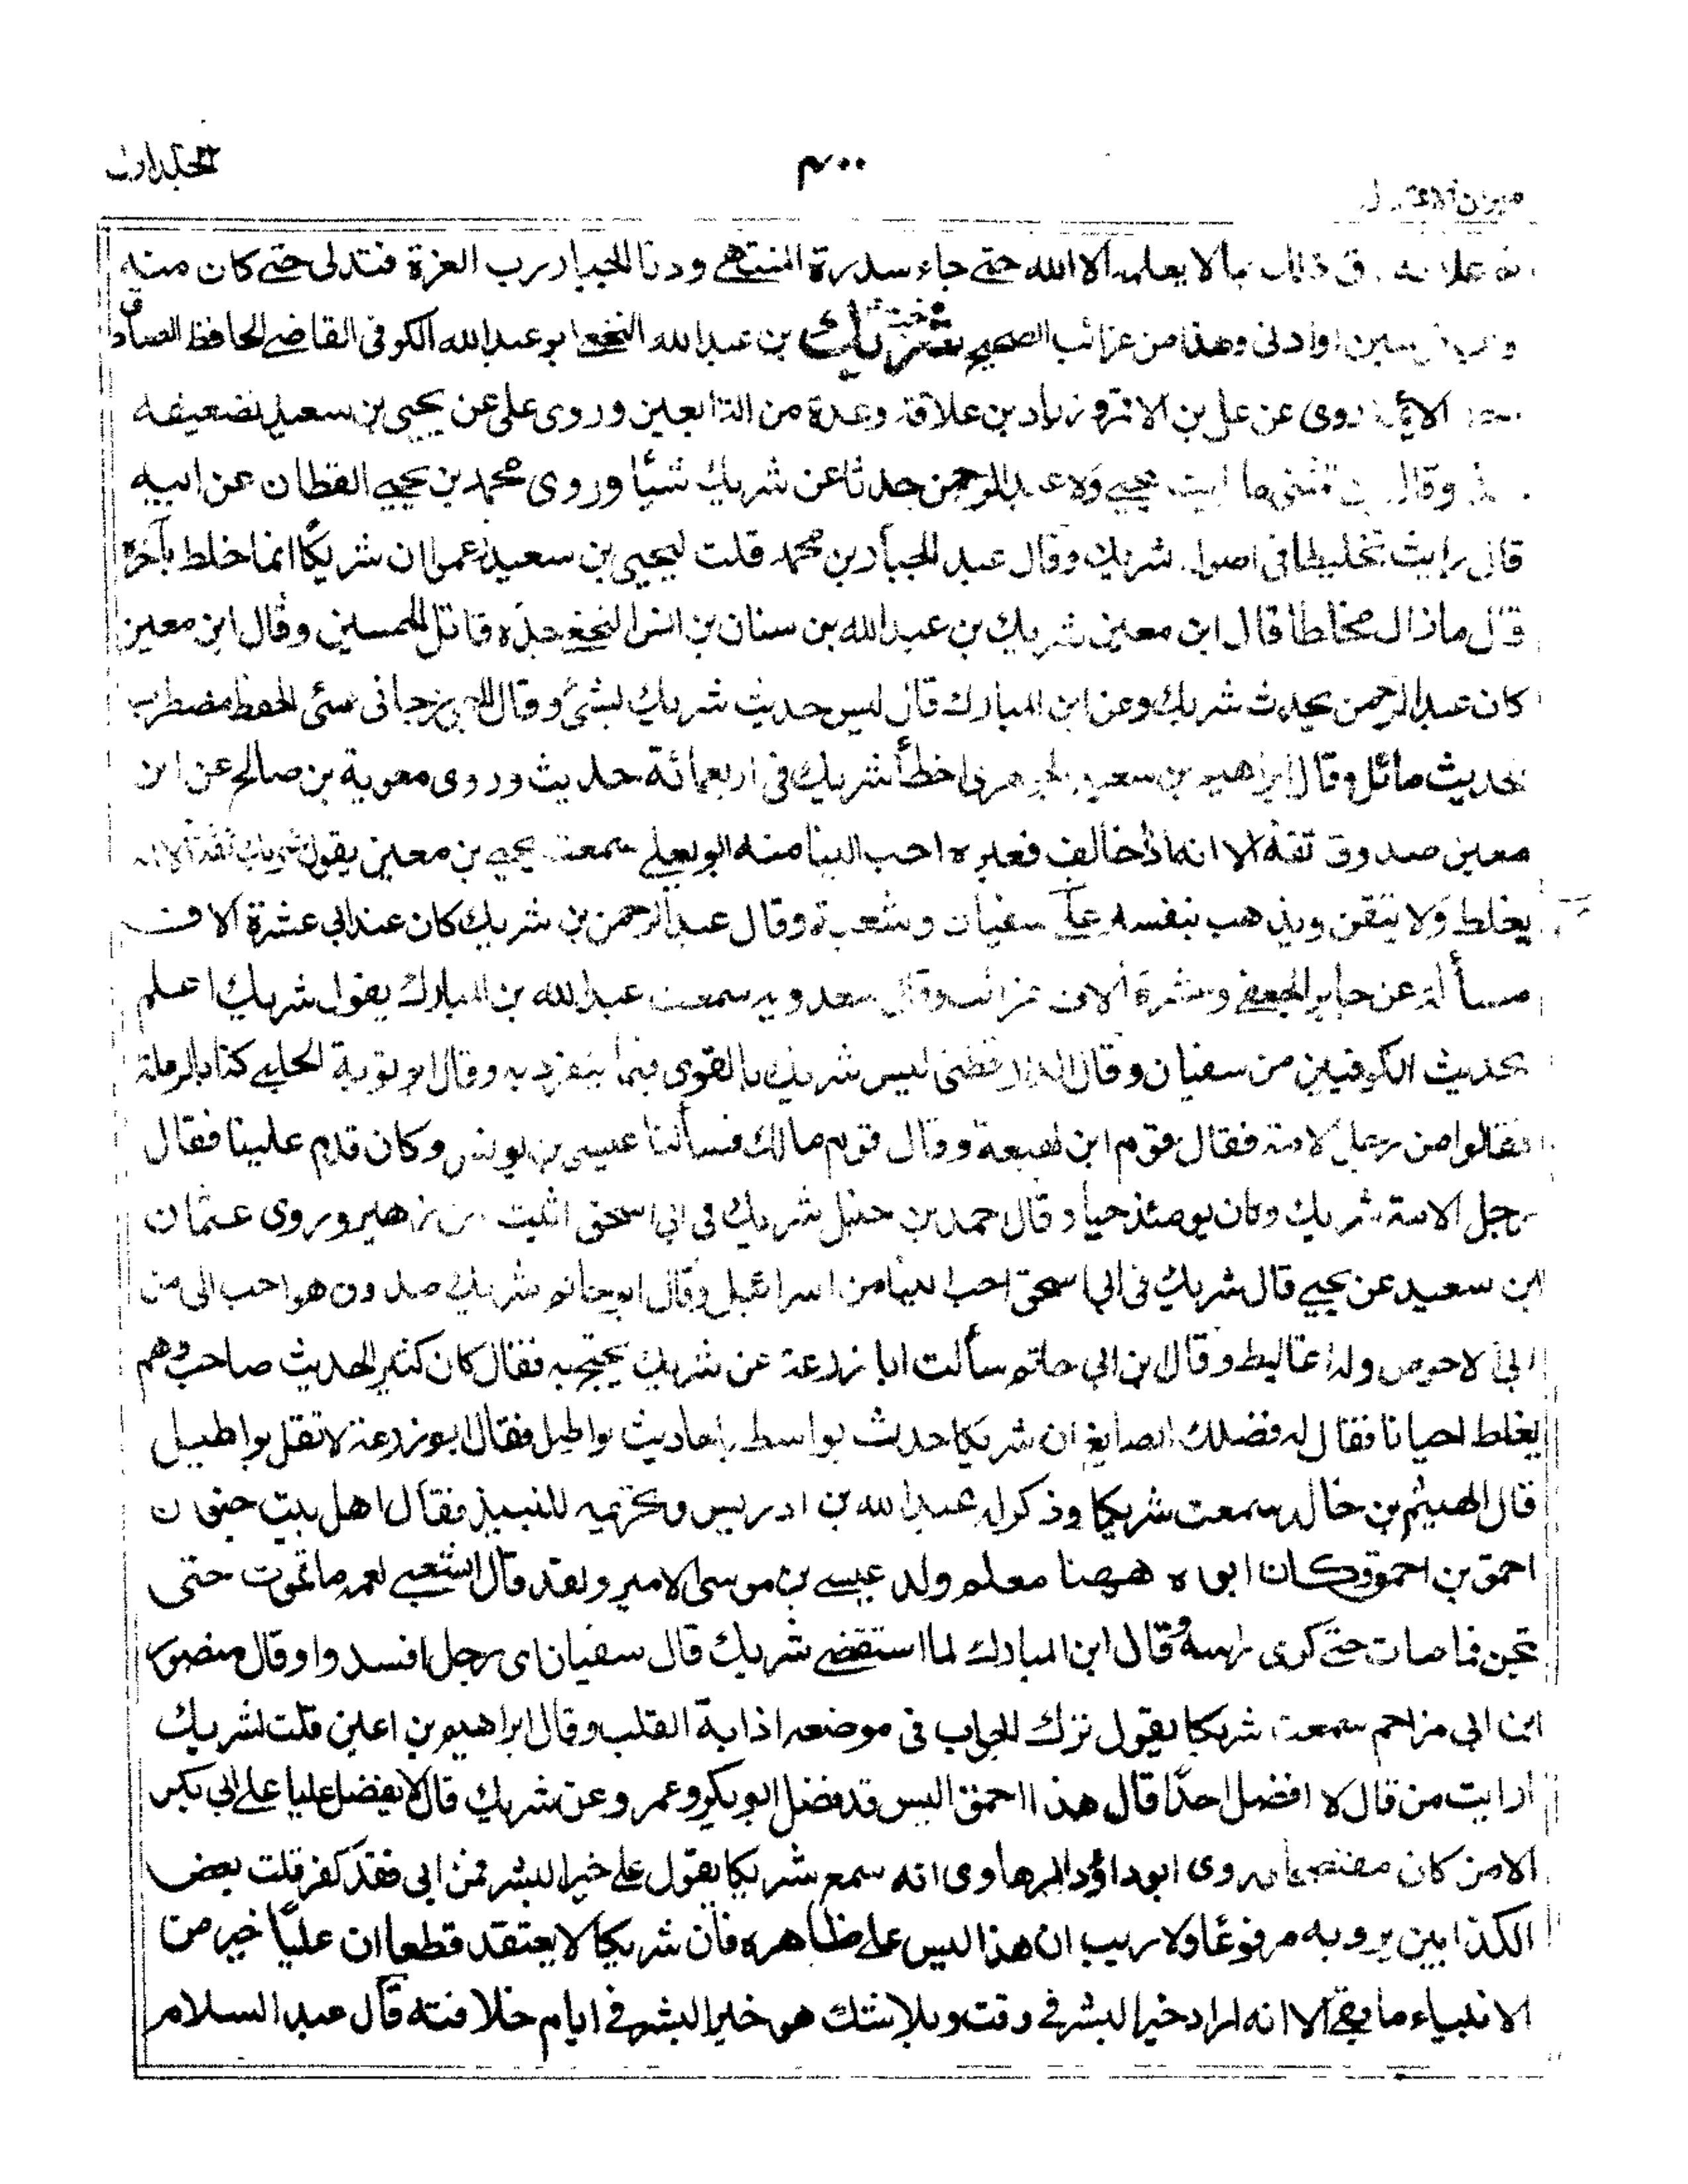 المجلد الاول
۴۰۰
ميزان الاعتدال
علا به فوق ذلك بما لا يعلمه الا الله حتى جاء سدرة المنتهى ودنا الجبار رب العزة فتدلى حتى كان منه
قوسين او ادنى وهذا من غرائب الصحيح شريك بن عبد الله النخعى ابو عبد الله الكوفى القاضى الحافظ الصادق
احد الائمة روى عن على بن الاقمر وزياد بن علاقة وعدة من التابعين وروى على عن يحيى بن سعيد تضعيفه
وقال ابن مثنى ما رايت يحيى ولا عبد الرحمن حدثا عن شريك شيئا وروى محمد بن يحيى القطان عن ابيه
قال رايت تخليطا فى اصول شريك وقال عبد الجبار بن محمد قلت ليحيى بن سعيد زعموا ان شريكا انما خلط بآخره
قال ما زال مخلطا قال ابن معين شريك بن عبد الله بن سنان بن انس النخعى جده قاتل الحسين وقال ابن معين
كان عبد الرحمن يحدث شريك وعن ابن المبارك قال ليس حديث شريك بشئ وقال الجوزجانى سئ الحفظ مضطرب
الحديث مائل وقال ابراهيم بن سعيد الجوهرى اخطأ شريك فى اربعمائة حديث وروى معوية بن صالح عن ابن
معين صدوق ثقة الا انه اذا خالف فغيره احب الينا منه ابو يعلى سمعت يحيى بن معين يقول شريك ثقة الا انه
يغلط ولا يتقن ويذهب بنفسه على سفيان وشعبة وقال عبد الرحمن بن شريك كان عند ابى عشرة الاف
مسألة عن جابر الجعفى وعشرة الاف غرائب وقال سعدويه سمعت عبد الله بن المبارك يقول شريك اعلم
بحديث الكوفيين من سفيان وقال الدارقطنى ليس شريك بالقوى فيما ينفرد به وقال ابو توبة الحلبى كنا بالرملة
فقالوا من رجل الامة فقال قوم ابن لهيعة وقال قوم مالك فسألنا عيسى بن يونس وكان قدم علينا فقال
رجل الامة شريك وكان يومئذ حيا وقال احمد بن حنبل شريك فى ابى اسحق اثبت من زهير وروى عثمان
ابن سعيد عن يحيى قال شريك فى ابى اسحق احب الينا من اسرائيل وقال ابو حاتم شريك صدوق هو احب الى من
ابى الاحوص وله اغاليط وقال ابن ابى حاتم سألت ابا زرعة عن شريك يحتج به فقال كان كثير الحديث صاحب وهم
يغلط احيانا فقال له فضلك الصايغ ان شريكا حدث بواسط باحاديث بواطيل فقال ابو زرعة لا تقل بواطيل
قال الهيثم بن خالد سمعت شريكا وذكر له عبد الله بن ادريس وتحريمه للنبيذ فقال اهل بيت جنون
احمق بن احمق وكان ابوه ههنا معلم ولد عيسى بن موسى الامير ولقد قال الشعبى لعمه ما تموت حتى
تجن فما مات حتى كوى راسه وقال ابن المبارك لما استقضى شريك قال سفيان اى رجل افسدوا وقال منصور
ابن ابى مزاحم سمعت شريكا يقول ترك الجواب فى موضعه اذابة القلب وقال ابراهيم بن اعين قلت لشريك
ارايت من قال لا افضل احدا قال هذا احمق اليس قد فضل ابو بكر وعمر وعن شريك قال لا يفضل عليا على ابى بكر
الا من كان مفتضحا وروى ابو داؤد الرهاوى انه سمع شريكا يقول على خير البشر فمن ابى فقد كفر قلت بعض
الكذابين يرويه مرفوعا ولا ريب ان هذا ليس على ظاهره فان شريكا لا يعتقد قطعا ان عليا خير من
الانبياء ما بقى الا انه اراد خير البشر فى وقت وبلا شك هو خير البشر فى ايام خلافته قال عبد السلام